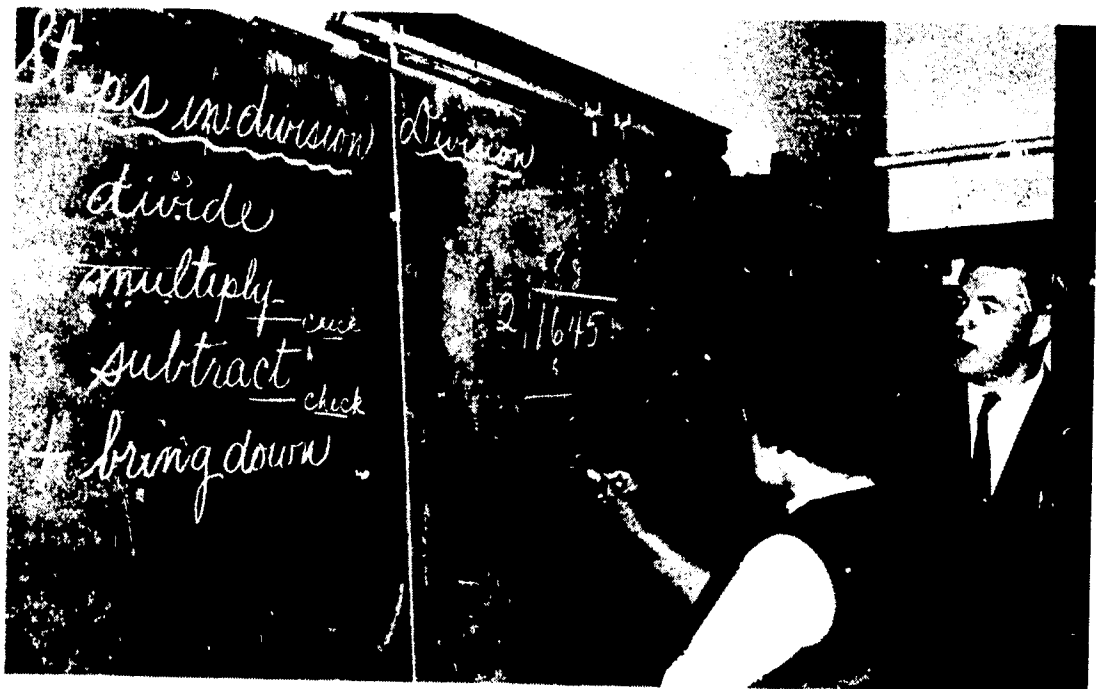 Steps in division
divide
multiply check
3 subtract check
4 bring down
Division
2 1645